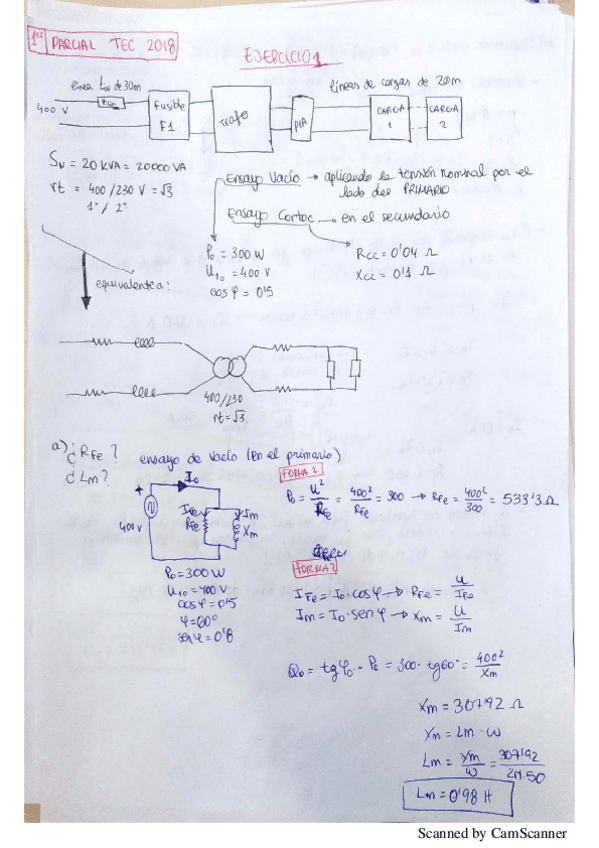 1er PARCIAL TEC 2018
EJERCICIO 1
línea LN de 30m
líneas de cargas de 20m
400 V
Fusible
F1
Trafo
PIA
CARGA
1
CARGA
2
SN = 20 KVA = 20000 VA
rt = 400/230 V = √3
1º / 2º
Ensayo Vacío → aplicando la tensión nominal por el
lado del PRIMARIO
Ensayo Cortoc → en el secundario
P0 = 300 W
U10 = 400 V
cos φ = 0'5
Rcc = 0'04 Ω
Xcc = 0'1 Ω
equivalente a:
400/230
rt = √3
a) ¿RFe?
¿Lm?
ensayo de vacío (en el primario)
FORMA 1
P0 = U²/RFe = 400²/RFe = 300 → RFe = 400²/300 = 533'3 Ω
+
I0
400 V
IFe
RFe
Im
Xm
P0 = 300 W
U10 = 400 V
cos φ = 0'5
φ = 60°
sen φ = 0'8
FORMA 2
IFe = I0 · cos φ → RFe = U/IFe
Im = I0 · sen φ → Xm = U/Im
Q0 = tg φ0 · P0 = 300 · tg 60° = 400²/Xm
Xm = 307'92 Ω
Xm = Lm · ω
Lm = Xm/ω = 307'92/2π·50
Lm = 0'98 H
Scanned by CamScanner